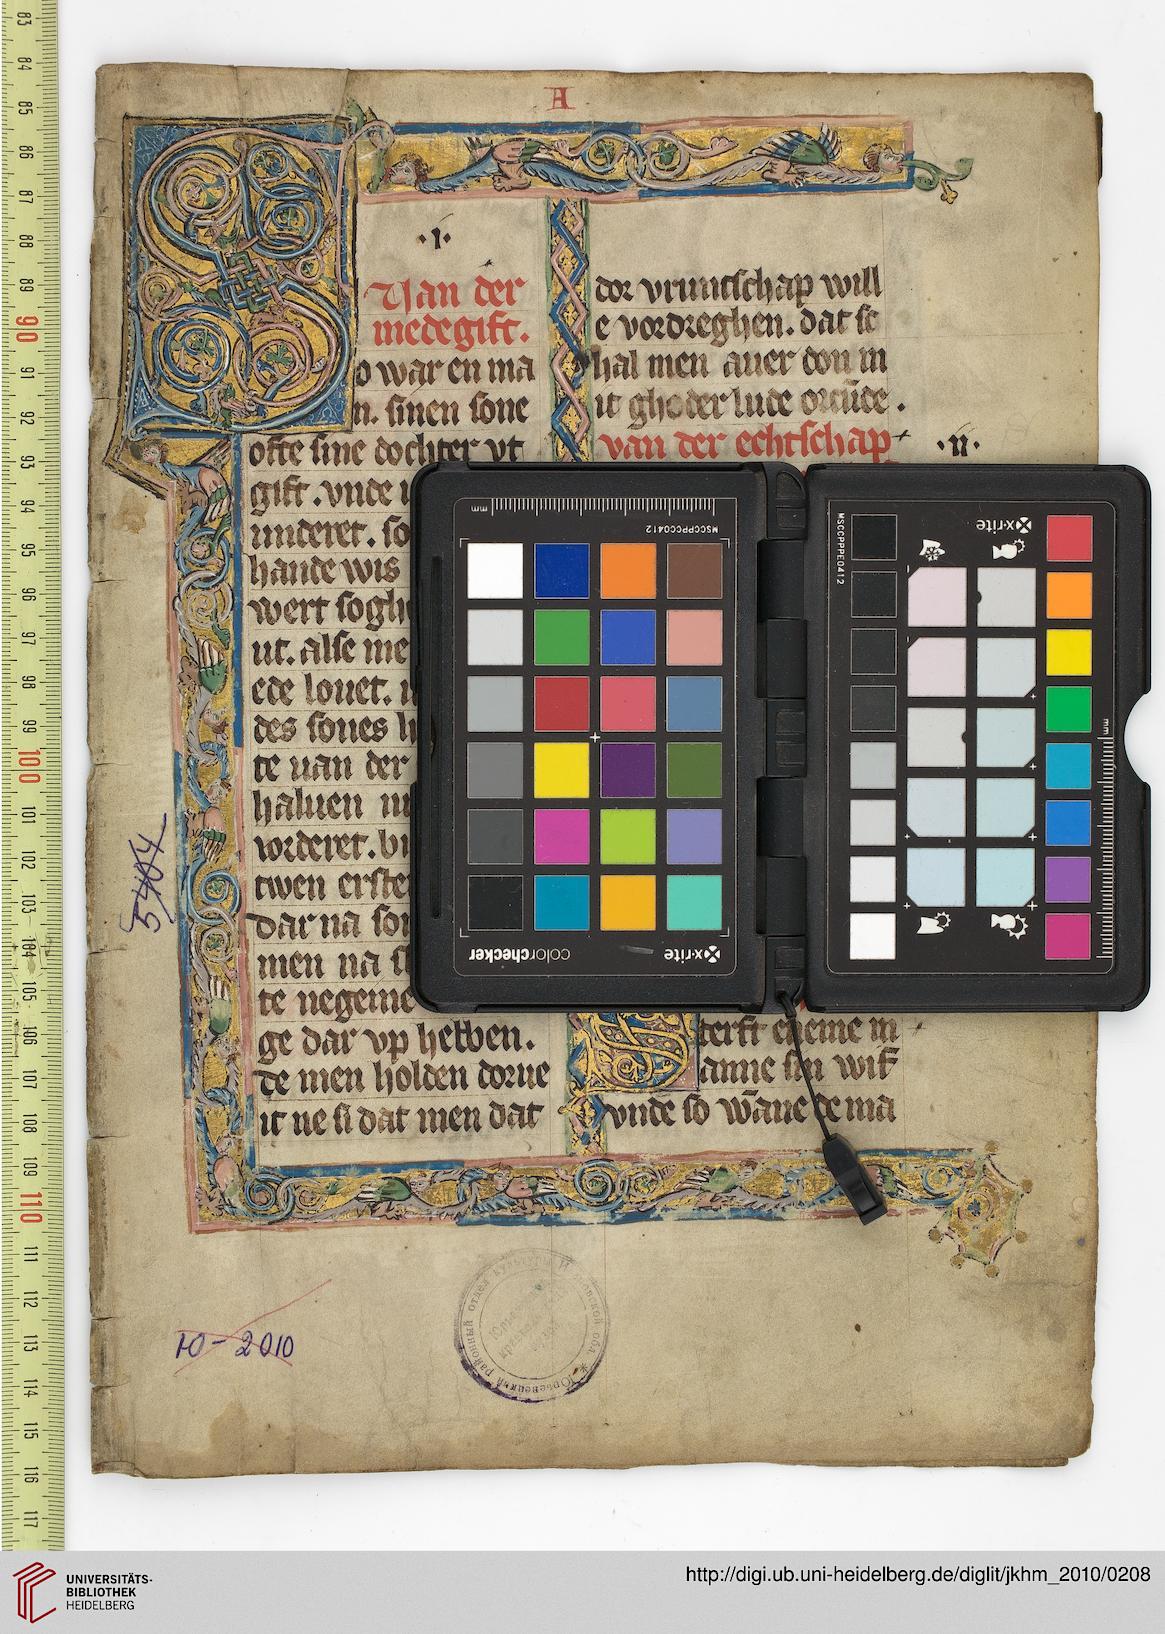 A
·I·
Van der
medegift.
o war en ma
n. sinen sone
ofte sine dochter vt
gift. vnde
underet. so
hande wis
wert
ut. alse me
ede louet.
des sones
te uan der
haluen
vorderet.
twen erste
dar na
men na
te negeme
ge dar vp hebben.
de men holden dorue
it ne si dat men dat
dor vruntschap will
e vordreghen. dat sc
hal men auer don m
it ghoder lude orcūde.
van der echtschap
·II·
terft eneme m
anne sin wif
vnde so wāne de ma
5404
Ю-2010
mm
MSCCPPCC0412
colorchecker
x-rite
MSCCPPPE0412
x-rite
mm
83
84
85
86
87
88
89
90
91
92
93
94
95
96
97
98
99
100
101
102
103
104
105
106
107
108
109
110
111
112
113
114
115
116
117
UNIVERSITÄTS-
BIBLIOTHEK
HEIDELBERG
http://digi.ub.uni-heidelberg.de/diglit/jkhm_2010/0208